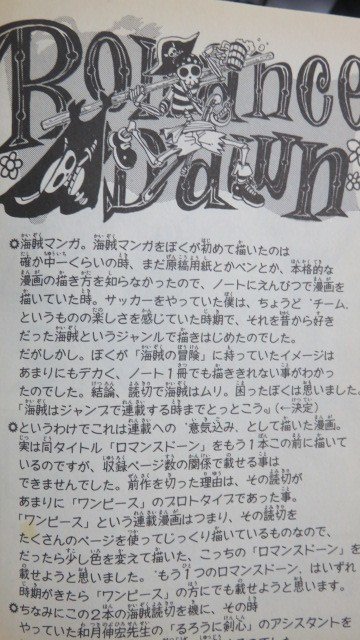 Romance
Dawn
✪海賊マンガ。海賊マンガをぼくが初めて描いたのは
確か中一くらいの時、まだ原稿用紙とかペンとか、本格的な
漫画の描き方を知らなかったので、ノートにえんぴつで漫画を
描いていた時。サッカーをやっていた僕は、ちょうど〝チーム〟
というものの楽しさを感じていた時期で、それを昔から好き
だった海賊というジャンルで描きはじめたのでした。
だがしかし。ぼくが「海賊の冒険」に持っていたイメージは
あまりにもデカく、ノート1冊でも描ききれない事がわかっ
たのでした。結論、読切で海賊はムリ。困ったぼくは思いました。
「海賊はジャンプで連載する時までとっとこう。」(←決定)
✪というわけでこれは連載への〝意気込み〟として描いた漫画。
実は同タイトル「ロマンスドーン」をもう1本この前に描いて
いるのですが、収録ページ数の関係で載せる事は
できませんでした。前作を切った理由は、その読切が
あまりに「ワンピース」のプロトタイプであった事。
「ワンピース」という連載漫画はつまり、その読切を
たくさんのページを使ってじっくり描いているものなので、
だったら少し色を変えて描いた、こっちの「ロマンスドーン」を
載せようと思いました。〝もう1つのロマンスドーン〟はいずれ
時期がきたら「ワンピース」の方にでも載せようと思います。
✪ちなみにこの2本の海賊読切を機に、その時
やっていた和月伸宏先生の「るろうに剣心」のアシスタントを